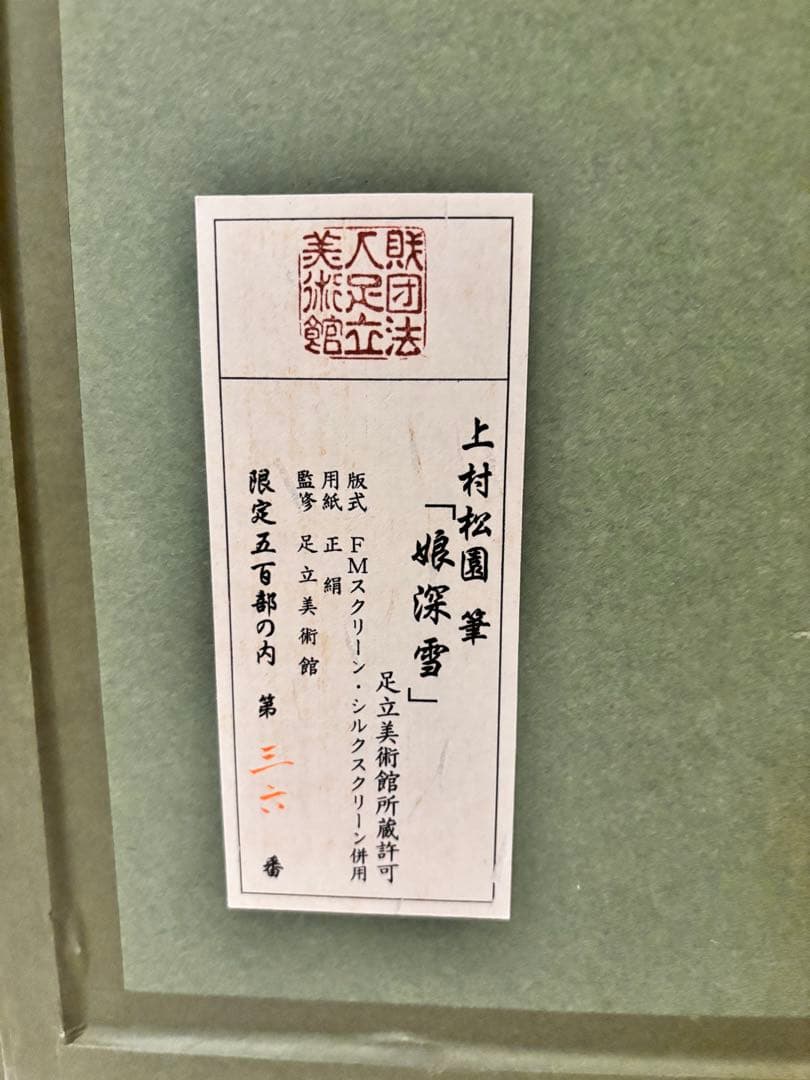 財団法
人足立
美術館
上村松園 筆
「娘深雪」
足立美術館所蔵許可
版式 FMスクリーン・シルクスクリーン併用
用紙 正絹
監修 足立美術館
限定五百部の内 第 三六 番